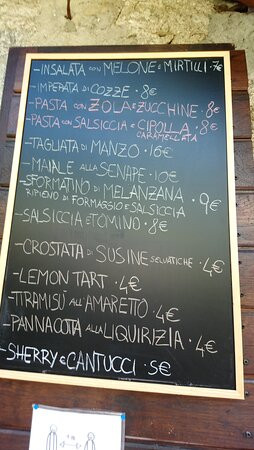 -INSALATA CON MELONE E MIRTILLI · 7€
-IMPEPATA DI COZZE · 8€
-PASTA CON ZOLA E ZUCCHINE · 8€
-PASTA CON SALSICCIA E CIPOLLA · 8€
CARAMELLATA
-TAGLIATA DI MANZO · 16€
-MAIALE ALLA SENAPE · 10€
-SFORMATINO DI MELANZANA
RIPIENO DI FORMAGGIO E SALSICCIA 9€
-SALSICCIA E TOMINO · 8€
-CROSTATA DI SUSINE SELVATICHE · 4€
-LEMON TART · 4€
-TIRAMISÙ ALL'AMARETTO · 4€
-PANNACOTTA ALLA LIQUIRIZIA · 4€
-SHERRY E CANTUCCI · 5€